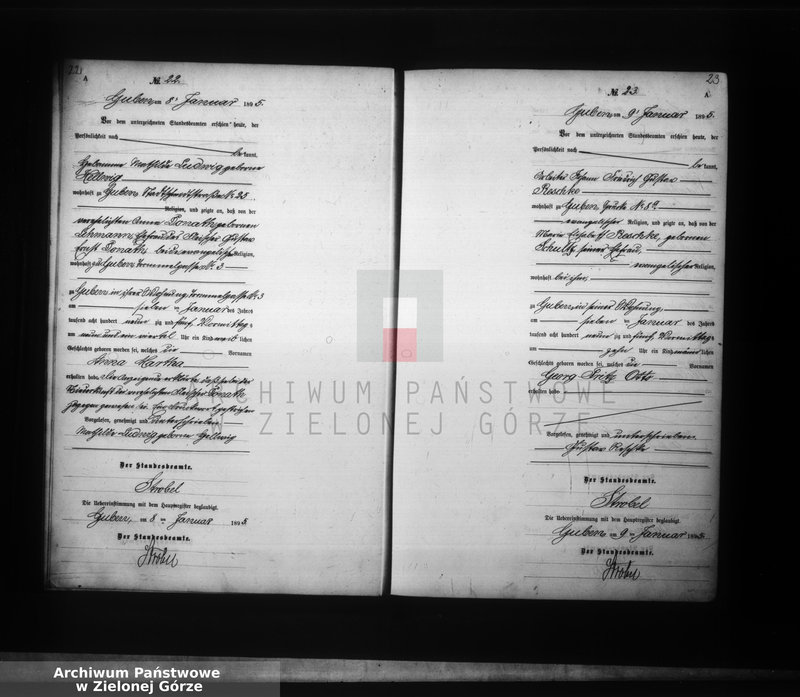 22
A
№ 22.
Guben, am 8ᵗ Januar 1895.
Vor dem unterzeichneten Standesbeamten erschien heute, der
Persönlichkeit nach
be kannt,
Hebamme Mathilde Ludwig geborene
Hellwig
wohnhaft zu Guben
Religion, und zeigte an, daß von der
verehelichten Anna Donath geborenen
Lehmann, Ehefrau des Gustav
Ernst Donath, beide evangelischer Religion,
wohnhaft zu Guben
zu Guben in ihrer Wohnung
am sieben ten Januar des Jahres
tausend acht hundert neun zig und fünf Vormittags
um neun und ein viertel Uhr ein Kind weib liches
Geschlechts geboren worden sei, welches die Vornamen
Anna Martha
erhalten habe. Die Anzeigende erklärte, daß sie bei der
Niederkunft der verehelichten Donath
zugegen gewesen sei.
Vorgelesen, genehmigt und unterschrieben
Mathilde Ludwig geborene Hellwig
Der Standesbeamte.
Strobel
Die Uebereinstimmung mit dem Hauptregister beglaubigt.
Guben, am 8 ten Januar 1895
Der Standesbeamte.
Strobel
23
A
№ 23.
Guben, am 9ᵗ Januar 1895.
Vor dem unterzeichneten Standesbeamten erschien heute, der
Persönlichkeit nach
be kannt,
Arbeiter Johann Friedrich Gustav
Reschke
wohnhaft zu Guben
evangelischer Religion, und zeigte an, daß von der
Marie Elisabeth Reschke, geborenen
Schultz seiner Ehefrau,
evangelischer Religion,
wohnhaft bei ihm,
zu Guben, in seiner Wohnung,
am sieben ten Januar des Jahres
tausend acht hundert neun zig und fünf Vormittags
um zehn Uhr ein Kind männ lichen
Geschlechts geboren worden sei, welches die Vornamen
Georg Fritz Otto
erhalten habe
Vorgelesen, genehmigt und unterschrieben
Gustav Reschke
Der Standesbeamte.
Strobel
Die Uebereinstimmung mit dem Hauptregister beglaubigt.
Guben, am 9 ten Januar 1895
Der Standesbeamte.
Strobel
ARCHIWUM PAŃSTWOWE
W ZIELONEJ GÓRZE
Archiwum Państwowe
w Zielonej Górze